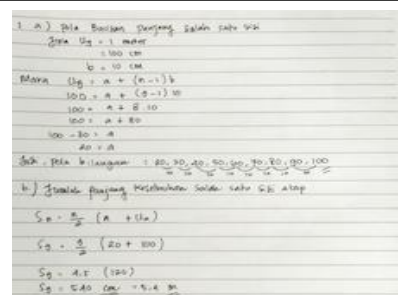 1 a) Pola Barisan Panjang Salah satu sisi
Jika U9 = 1 meter
= 100 cm
b = 10 cm
Maka U9 = a + (n-1) b
100 = a + (9-1) 10
100 = a + 8.10
100 = a + 80
100 - 80 = a
20 = a
Jadi, Pola bilangan : 20, 30, 40, 50, 60, 70, 80, 90, 100
10 10 10 10 10 10 10 10
b.) Jumlah panjang keseluruhan salah satu sisi atap
Sn = n/2 (a + Un)
S9 = 9/2 (20 + 100)
S9 = 4.5 (120)
S9 = 540 cm = 5.4 m